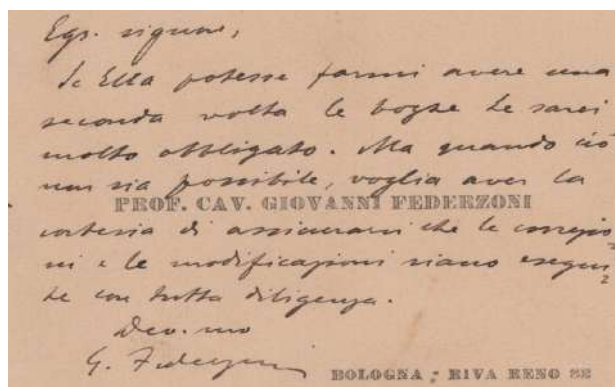 Egr. signore,
Se Ella potesse farmi avere una
seconda volta le bozze Le sarei
molto obbligato. Ma quando ciò
non sia possibile, voglia aver la
PROF. CAV. GIOVANNI FEDERZONI
cortesia di assicurarsi che le correzio
ni e le modificazioni siano esegui
te con tutta diligenza.
Dev.mo
G. Federzoni
BOLOGNA, RIVA RENO